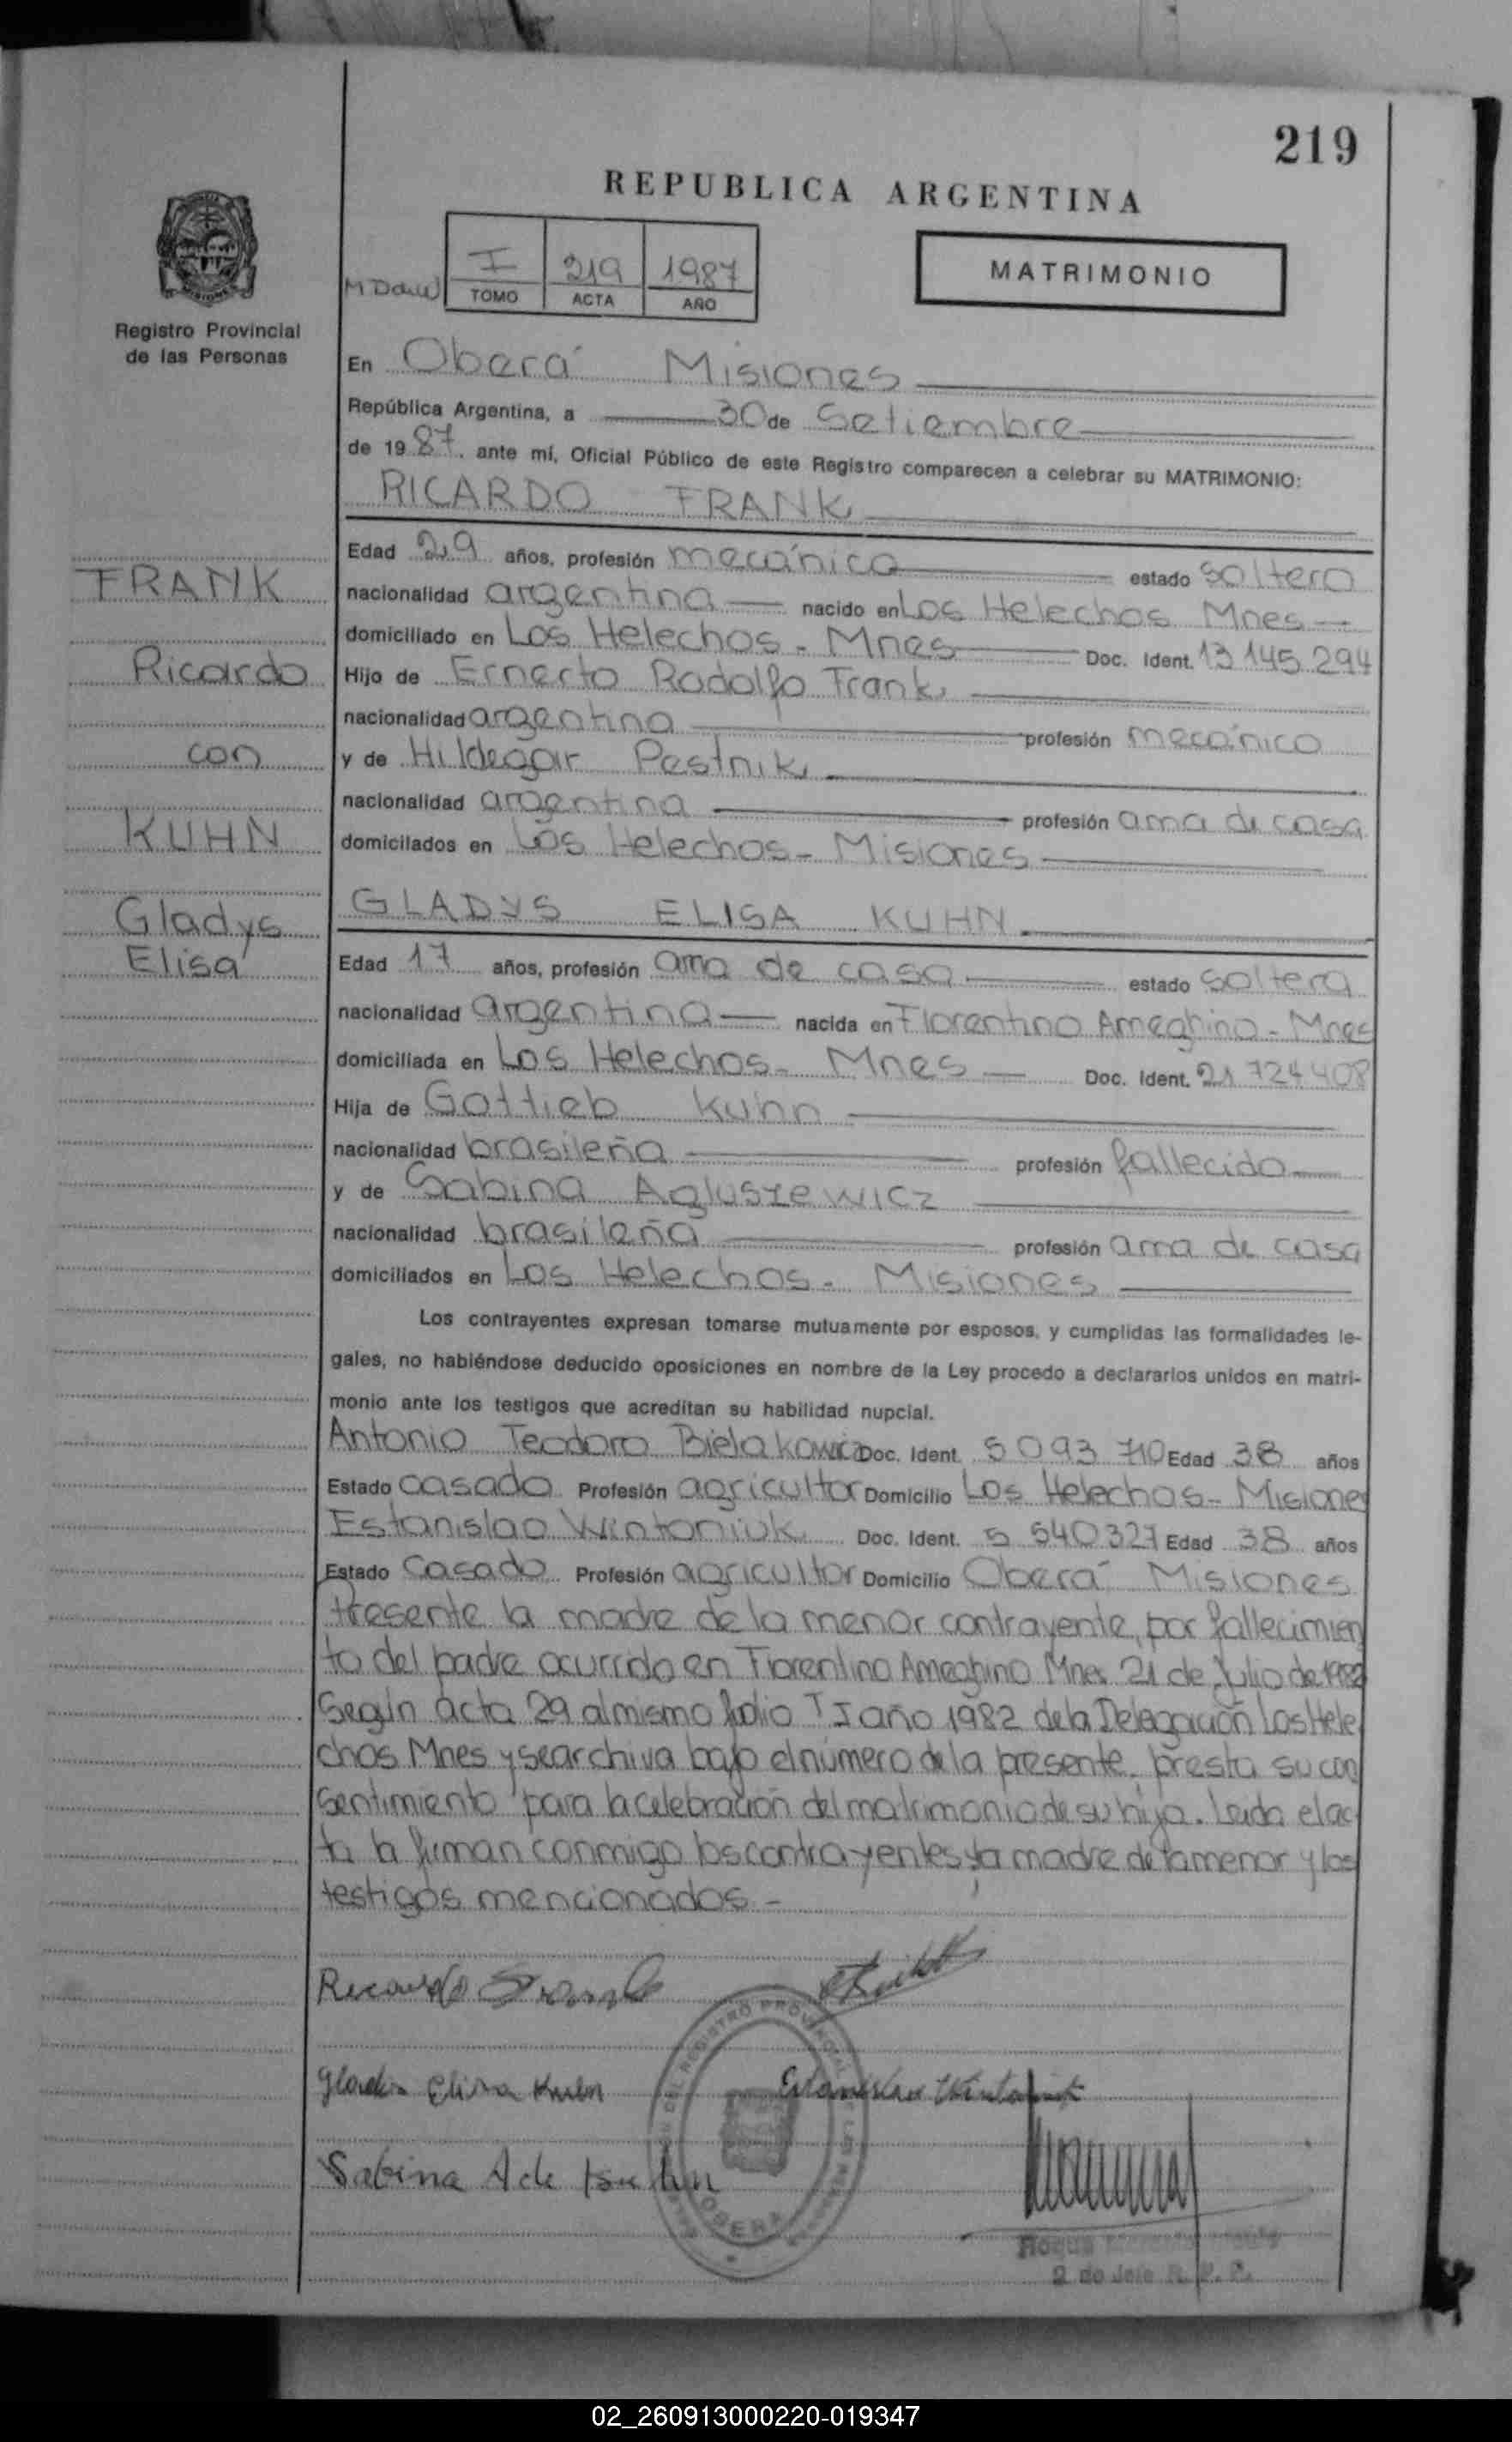 219
REPUBLICA ARGENTINA
I 219 1987
TOMO ACTA AÑO
MATRIMONIO
Registro Provincial
de las Personas
En Oberá Misiones
República Argentina, a 30 de Setiembre
de 1987, ante mí, Oficial Público de este Registro comparecen a celebrar su MATRIMONIO:
RICARDO FRANK
Edad 29 años, profesión mecánico estado soltero
FRANK
nacionalidad argentina nacido en Los Helechos Mnes
domiciliado en Los Helechos - Mnes Doc. Ident. 13 145 294
Ricardo
Hijo de Ernecto Rodolfo Frank
nacionalidad argentino profesión mecánico
con
y de Hildegar Pestnik
nacionalidad argentina profesión ama de casa
KUHN
domicilados en Los Helechos - Misiones
Gladys
GLADYS ELISA KUHN
Elisa
Edad 17 años, profesión ama de casa estado soltera
nacionalidad argentina nacida en Florentino Ameghino - Mnes
domiciliada en Los Helechos - Mnes Doc. Ident. 21 724 408
Hija de Gottieb Kuhn
nacionalidad brasileña profesión fallecido
y de Sabina Agluszewicz
nacionalidad brasileña profesión ama de casa
domiciliados en Los Helechos - Misiones
Los contrayentes expresan tomarse mutuamente por esposos, y cumplidas las formalidades le-
gales, no habiéndose deducido oposiciones en nombre de la Ley procedo a declararlos unidos en matri-
monio ante los testigos que acreditan su habilidad nupcial.
Antonio Teodoro Bielakowicz Doc. Ident. 5 093 710 Edad 38 años
Estado casado Profesión agricultor Domicilio Los Helechos - Misiones
Estanislao Wintoniuk Doc. Ident. 5 540 327 Edad 38 años
Estado Casado Profesión agricultor Domicilio Oberá Misiones
Presente la madre de la menor contrayente, por fallecimien
to del padre ocurrido en Florentino Ameghino Mnes 21 de Julio de 1982
Según acta 29 al mismo folio T I año 1982 de la Delegación Los Hele
chos Mnes y se archiva bajo el número de la presente, presta su con
sentimiento para la celebración del matrimonio de su hija. Leida el ac
ta la firman conmigo los contrayentes, la madre de la menor y los
testigos mencionados -
Ricardo Frank
Gladis Elisa Kuhn Estanislao Wintoniuk
Sabina A de Kuhn
OBERA
2 do Jefe R. P. P.
02_260913000220-019347